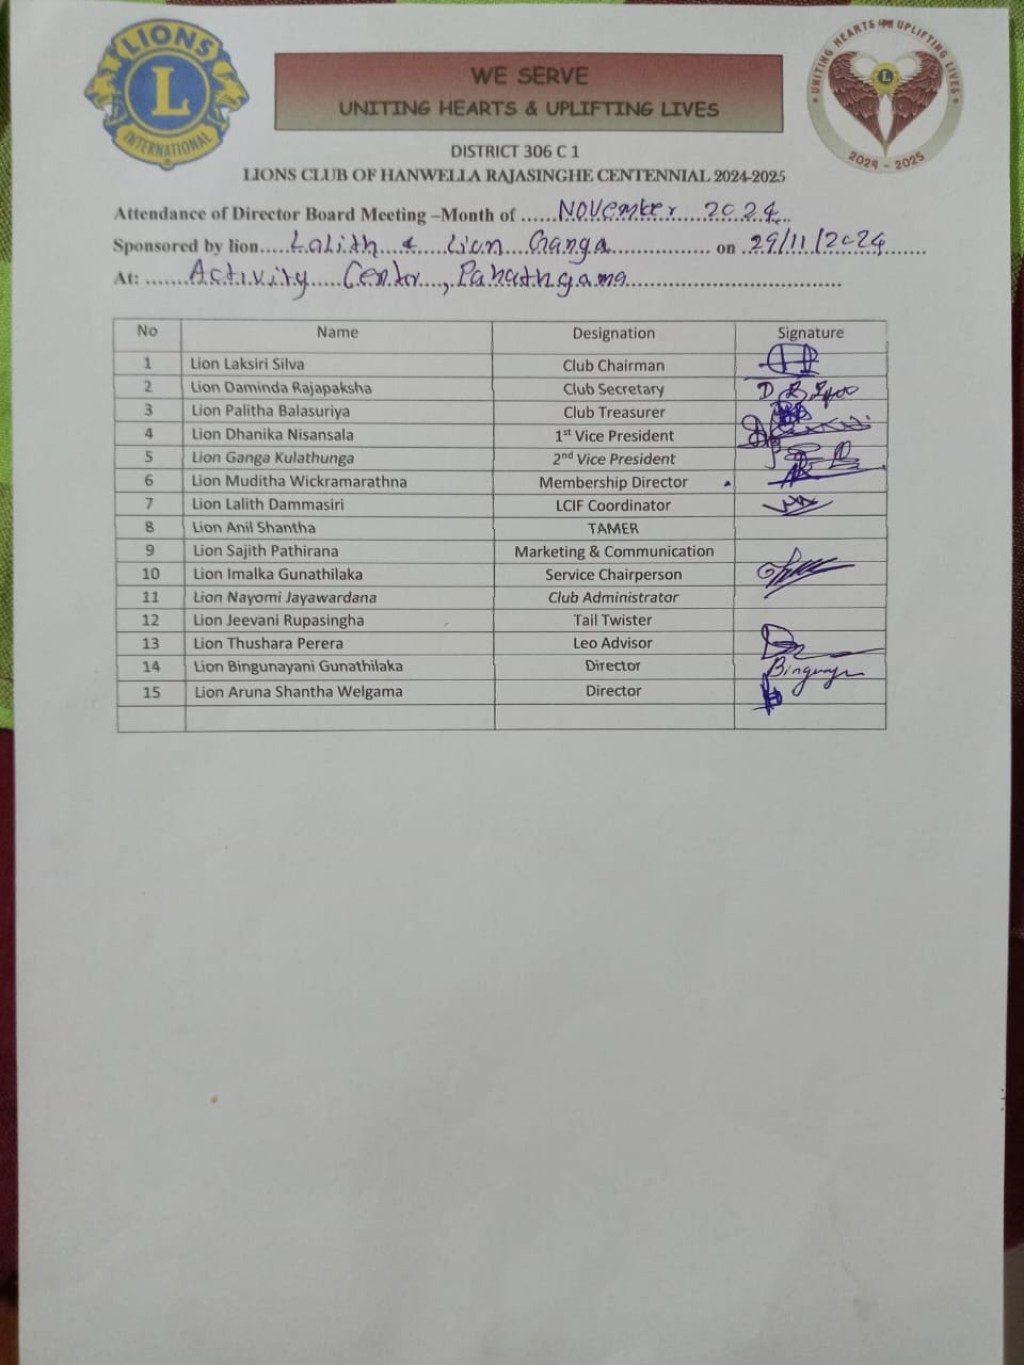 LIONS
L
INTERNATIONAL
WE SERVE
UNITING HEARTS & UPLIFTING LIVES
UNITING HEARTS UPLIFTING LIVES
L
2024 - 2025
DISTRICT 306 C 1
LIONS CLUB OF HANWELLA RAJASINGHE CENTENNIAL 2024-2025
Attendance of Director Board Meeting –Month of ......November 2024..
Sponsored by lion.....Lalith & Lion Ganga................. on 29/11/2024......
At: .......Activity Center, Pahathgama....................................
No Name Designation Signature
1 Lion Laksiri Silva Club Chairman
2 Lion Daminda Rajapaksha Club Secretary
3 Lion Palitha Balasuriya Club Treasurer
4 Lion Dhanika Nisansala 1st Vice President
5 Lion Ganga Kulathunga 2nd Vice President
6 Lion Muditha Wickramarathna Membership Director
7 Lion Lalith Dammasiri LCIF Coordinator
8 Lion Anil Shantha TAMER
9 Lion Sajith Pathirana Marketing & Communication
10 Lion Imalka Gunathilaka Service Chairperson
11 Lion Nayomi Jayawardana Club Administrator
12 Lion Jeevani Rupasingha Tail Twister
13 Lion Thushara Perera Leo Advisor
14 Lion Bingunayani Gunathilaka Director
15 Lion Aruna Shantha Welgama Director